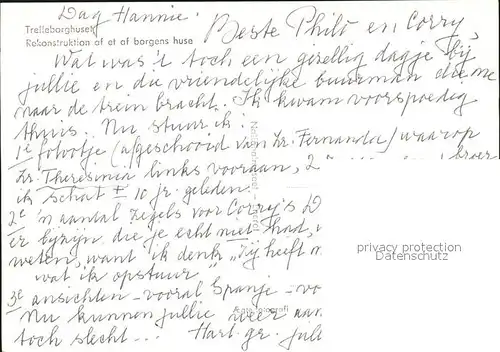 Dag Hannie.
Trelleborghuset
Rekonstruktion af et af borgens huse
Beste Philo en Corry,
Wat was 't toch een gezellig dagje bij
jullie en die vriendelijke buurman die me
naar de trein bracht. Ik kwam voorspoedig
thuis. Nu stuur ik:
1e fotootje (afgeschooid van Zr. Fernanda) waarop
Zr. Theresinia links vooraan, 2
ik schat ± 10 jr. geleden.
2e 'n aantal zegels voor Corry's
er bijzijn die je echt niet had,
weten, want ik denk "Zij heeft
wat ik opstuur"
3e ansichten - vooral Spanje -
Nu kunnen jullie weer
toch slecht... Hart. gr.
privacy protection
Datenschutz